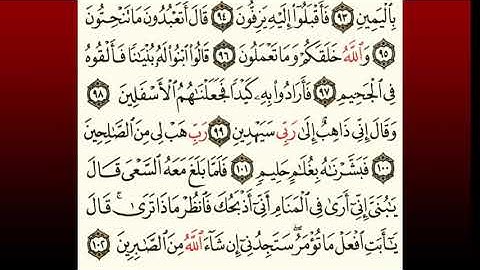 بِالْيَمِينِ ٩٣ فَأَقْبَلُوا إِلَيْهِ يَزِفُّونَ ٩٤ قَالَ أَتَعْبُدُونَ مَا تَنْحِتُونَ
٩٥ وَاللَّهُ خَلَقَكُمْ وَمَا تَعْمَلُونَ ٩٦ قَالُوا ابْنُوا لَهُ بُنْيَانًا فَأَلْقُوهُ
فِي الْجَحِيمِ ٩٧ فَأَرَادُوا بِهِ كَيْدًا فَجَعَلْنَاهُمُ الْأَسْفَلِينَ ٩٨
وَقَالَ إِنِّي ذَاهِبٌ إِلَى رَبِّي سَيَهْدِينِ ٩٩ رَبِّ هَبْ لِي مِنَ الصَّالِحِينَ
١٠٠ فَبَشَّرْنَاهُ بِغُلَامٍ حَلِيمٍ ١٠١ فَلَمَّا بَلَغَ مَعَهُ السَّعْيَ قَالَ
يَا بُنَيَّ إِنِّي أَرَى فِي الْمَنَامِ أَنِّي أَذْبَحُكَ فَانْظُرْ مَاذَا تَرَى ۚ قَالَ
يَا أَبَتِ افْعَلْ مَا تُؤْمَرُ ۖ سَتَجِدُنِي إِنْ شَاءَ اللَّهُ مِنَ الصَّابِرِينَ ١٠٢